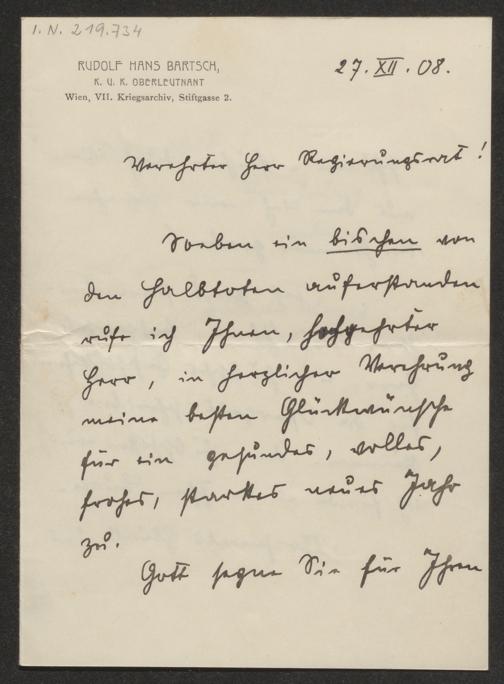 I. N. 219.734
RUDOLF HANS BARTSCH,
K. U. K. OBERLEUTNANT
Wien, VII. Kriegsarchiv, Stiftgasse 2.
27. XII. 08.
Verehrter Herr Regierungsrat!
Soeben ein bischen von
den Halbtoten auferstanden
rufe ich Ihnen, hochgeehrter
Herr, in herzlicher Verehrung
meine besten Glückwünsche
für ein gesundes, volles,
frohes, starkes neues Jahr
zu.
Gott segne Sie für Ihren